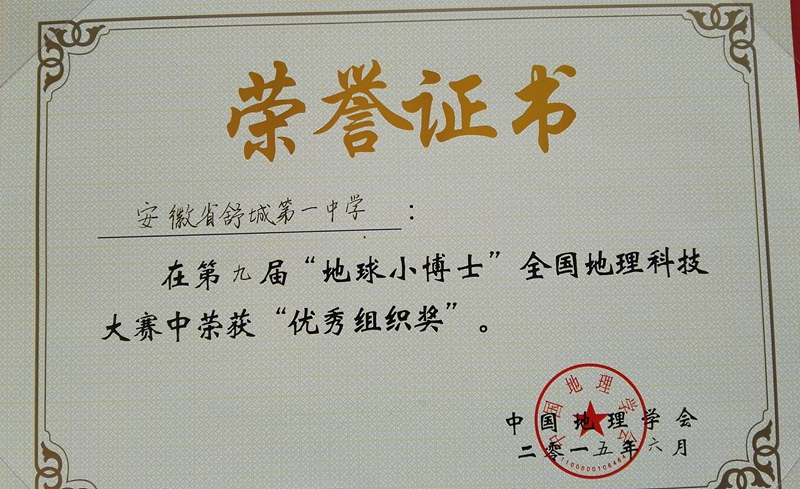 荣誉证书
安徽省舒城第一中学：
在第九届“地球小博士”全国地理科技
大赛中荣获“优秀组织奖”。
中国地理学会
中国地理学会
二零一五年六月